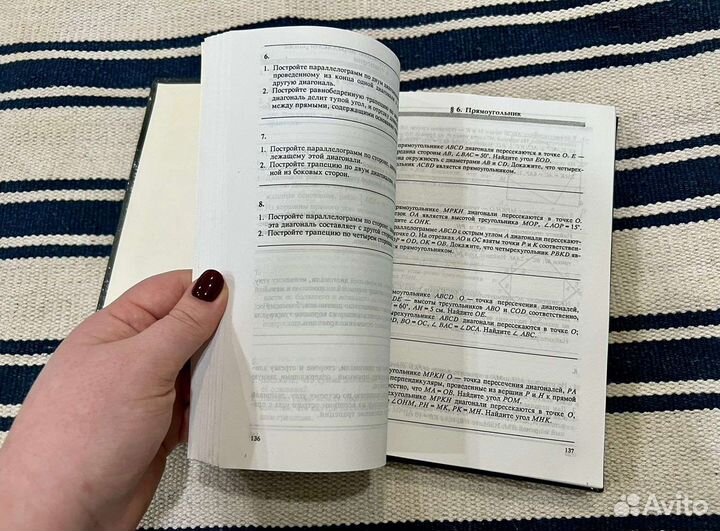 6.
1. Постройте параллелограмм по двум
проведенному из конца одной диагонали
другую диагональ.
2. Постройте равнобедренную трапецию
диагональ делит тупой угол, и
между прямыми, содержащими
7.
1. Постройте параллелограмм по стороне,
лежащему этой диагонали.
2. Постройте трапецию по двум
ной из боковых сторон.
8.
1. Постройте параллелограмм по стороне,
эта диагональ составляет с другой
2. Постройте трапецию по четырем
136
§ 6. Прямоугольник
прямоугольнике ABCD диагонали пересекаются в точке O. E —
редина стороны AB, ∠BAC = 50°. Найдите угол EOD.
на окружность с диаметрами AB и CD. Докажите, что четырех-
ольник ACBD является прямоугольником.
прямоугольнике MPKH диагонали пересекаются в точке O.
зок OA является высотой треугольника MOP, ∠AOP = 15°.
∠OHK.
параллелограмме ABCD с острым углом A диагонали пересекают-
точке O. На отрезках AO и OC взяты точки P и K соответственно,
OP = OD, OK = OB. Докажите, что четырехугольник PBKD яв-
я прямоугольником.
моугольнике ABCD O — точка пересечения диагоналей,
DE — высоты треугольников ABO и COD соответственно,
= 60°, AH = 5 см. Найдите OE.
рехугольнике ABCD диагонали пересекаются в точке O;
D, BO = OC, ∠BAC = ∠DCA. Найдите ∠ABC.
угольнике MPKH O — точка пересечения диагоналей, PA
перпендикуляры, проведенные из вершин P и H к прямой
вестно, что MA = OB. Найдите угол POM.
ехугольнике MPKH диагонали пересекаются в точке O,
∠OHM, PH = MK, PK = MH. Найдите угол MHK.
137
Avito